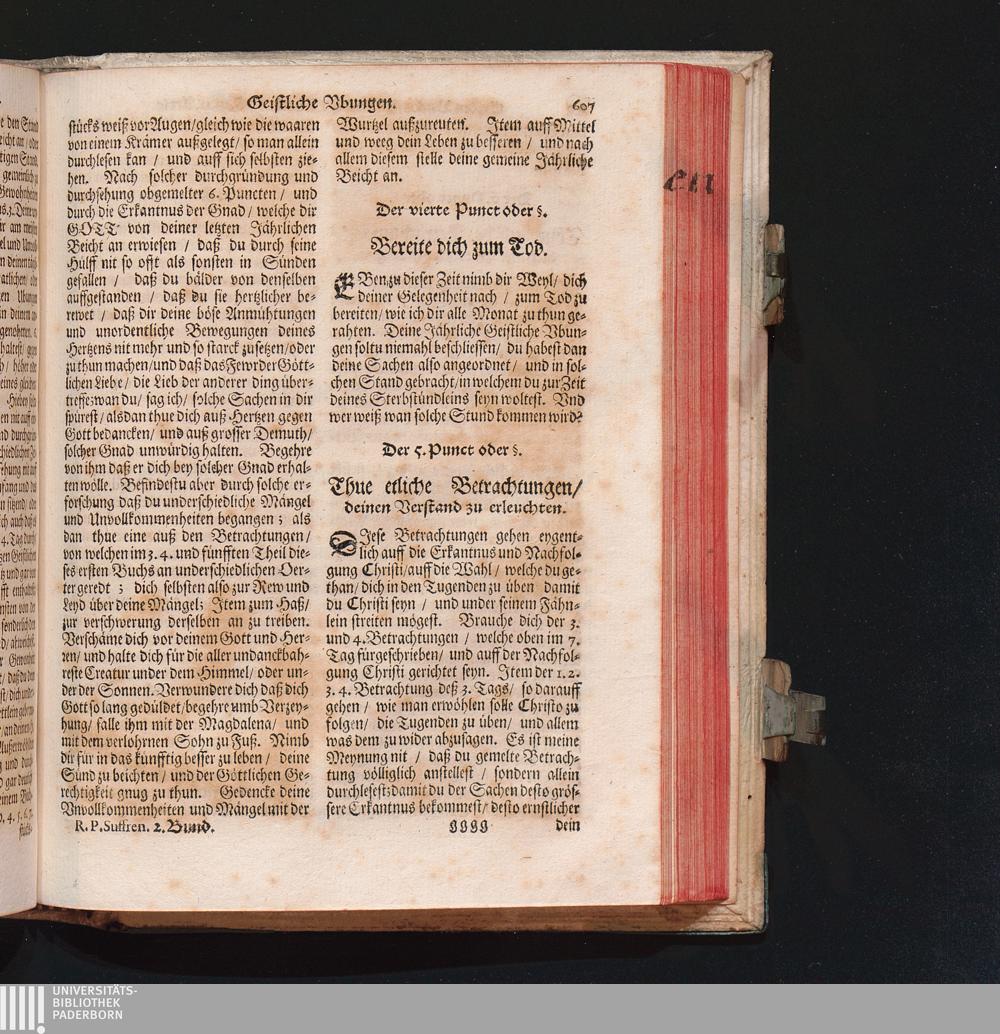 Geistliche Vbungen. 607
stücks weiß vor Augen/gleich wie die waaren
von einem Krämer außgelegt/ so man allein
durchlesen kan / und auff sich selbsten zie-
hen. Nach solcher durchgründung und
durchsehung obgemelter 6. Puncten / und
durch die Erkantnus der Gnad/ welche dir
GOTT von deiner letzten Jährlichen
Beicht an erwiesen / daß du durch seine
Hülff nit so offt als sonsten in Sünden
gefallen / daß du bälder von denselben
auffgestanden / daß du sie hertzlicher be-
rewet / daß dir deine böse Anmühtungen
und unordentliche Bewegungen deines
Hertzens nit mehr und so starck zusetzen/oder
zu thun machen/und daß das Fewr der Gött-
lichen Liebe/ die Lieb der anderer ding über-
treffe: wan du/ sag ich/ solche Sachen in dir
spürest/ alsdan thue dich auß Hertzen gegen
Gott bedancken/ und auß grosser Demuth/
solcher Gnad unwürdig halten. Begehre
von ihm daß er dich bey solcher Gnad erhal-
ten wölle. Befindestu aber durch solche er-
forschung daß du underschiedliche Mängel
und Unvollkommenheiten begangen; als
dan thue eine auß den Betrachtungen/
von welchen im 3. 4. und fünfften Theil die-
ses ersten Buchs an underschiedlichen Oer-
ter geredt ; dich selbsten also zur Rew und
Leyd über deine Mängel; Item zum Haß/
zur verschwerung derselben an zu treiben.
Verschäme dich vor deinem Gott und Her-
ren/ und halte dich für die aller undanckbah-
reste Creatur under dem Himmel/ oder un-
der der Sonnen. Verwundere dich daß dich
Gott so lang gedüldet/ begehre umb Verzey-
hung/ falle ihm mit der Magdalena/ und
mit dem verlohrnen Sohn zu Fuß. Nimb
dir für in das künfftig besser zu leben / deine
Sünd zu beichten/ und der Göttlichen Ge-
rechtigkeit gnug zu thun. Gedencke deine
Unvollkommenheiten und Mängel mit der
R. P. Suffren. 2. Bund.
Wurtzel außzureuten. Item auff Mittel
und weeg dein Leben zu besseren / und nach
allem diesem stelle deine gemeine Jährliche
Beicht an.
Der vierte Punct oder §.
Bereite dich zum Tod.
EBen zu dieser Zeit nimb dir Weyl/ dich
deiner Gelegenheit nach / zum Tod zu
bereiten/ wie ich dir alle Monat zu thun ge-
rahten. Deine Jährliche Geistliche Vbun-
gen soltu niemahl beschliessen/ du habest dan
deine Sachen also angeordnet/ und in sol-
chen Stand gebracht/ in welchem du zur Zeit
deines Sterbstündleins seyn woltest. Vnd
wer weiß wan solche Stund kommen wird?
Der 5. Punct oder §.
Thue etliche Betrachtungen/
deinen Verstand zu erleuchten.
DJese Betrachtungen gehen eygent-
lich auff die Erkantnus und Nachfol-
gung Christi/ auff die Wahl/ welche du ge-
than/ dich in den Tugenden zu üben damit
du Christi seyn / und under seinem Fähn-
lein streiten mögest. Brauche dich der 3.
und 4. Betrachtungen / welche oben im 7.
Tag fürgeschrieben/ und auff der Nachfol-
gung Christi gerichtet seyn. Item der 1. 2.
3. 4. Betrachtung deß 3. Tags/ so darauff
gehen / wie man erwöhlen solle Christo zu
folgen/ die Tugenden zu üben/ und allem
was dem zu wider abzusagen. Es ist meine
Meynung nit / daß du gemelte Betrach-
tung völliglich anstellest / sondern allein
durchlesest: damit du der Sachen desto grös-
sere Erkantnus bekommest/ desto ernstlicher
gggg dein
en
UNIVERSITÄTS-
BIBLIOTHEK
PADERBORN